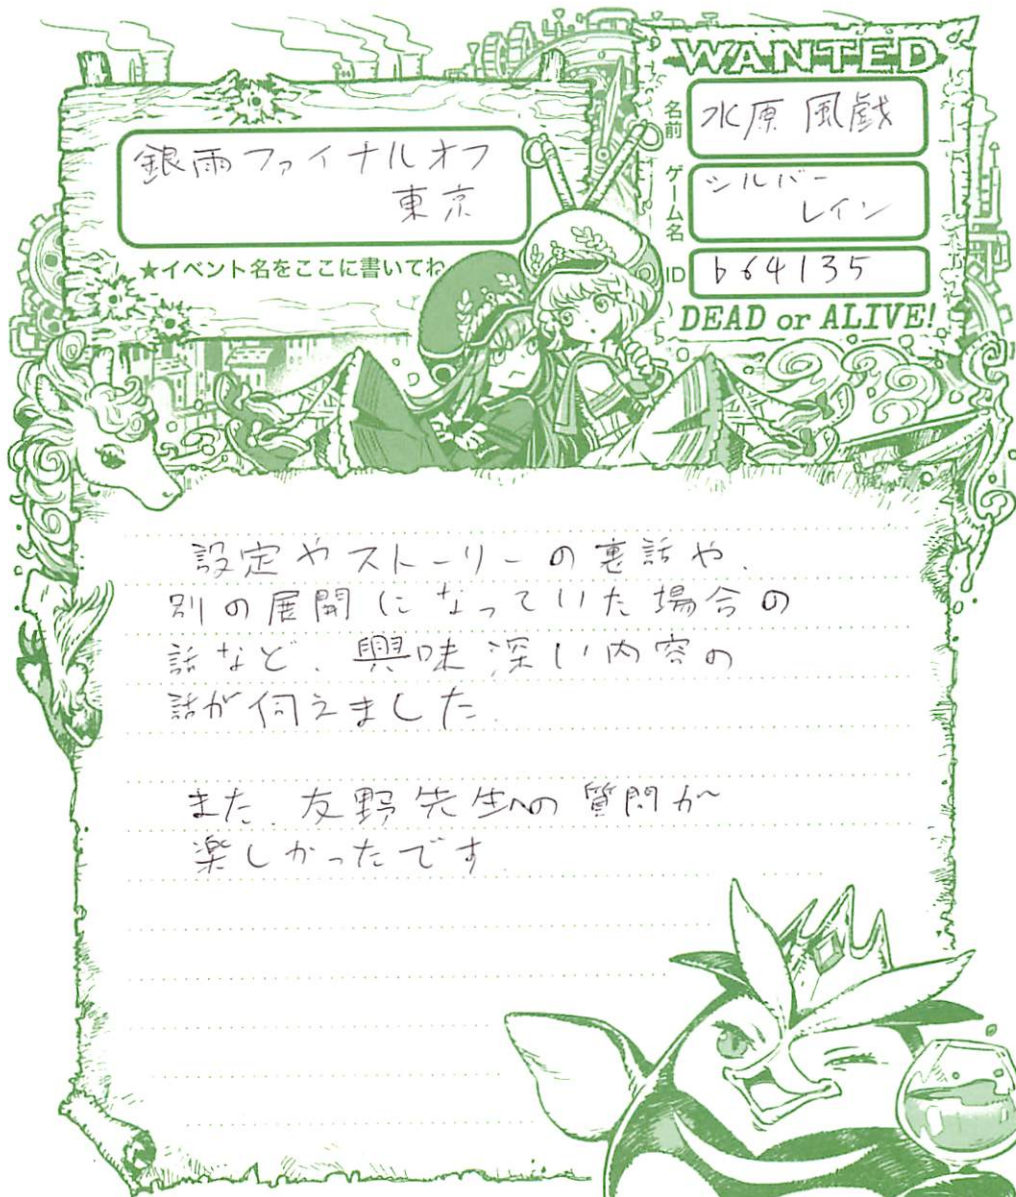 銀雨ファイナルオフ
東京
★イベント名をここに書いてね
WANTED
名前
水原 風戯
ゲーム名
シルバー
レイン
ID
b64135
DEAD or ALIVE!
設定やストーリーの裏話や、
別の展開になっていた場合の
話など、興味深い内容の
話が伺えました。
また、友野先生への質問が
楽しかったです。